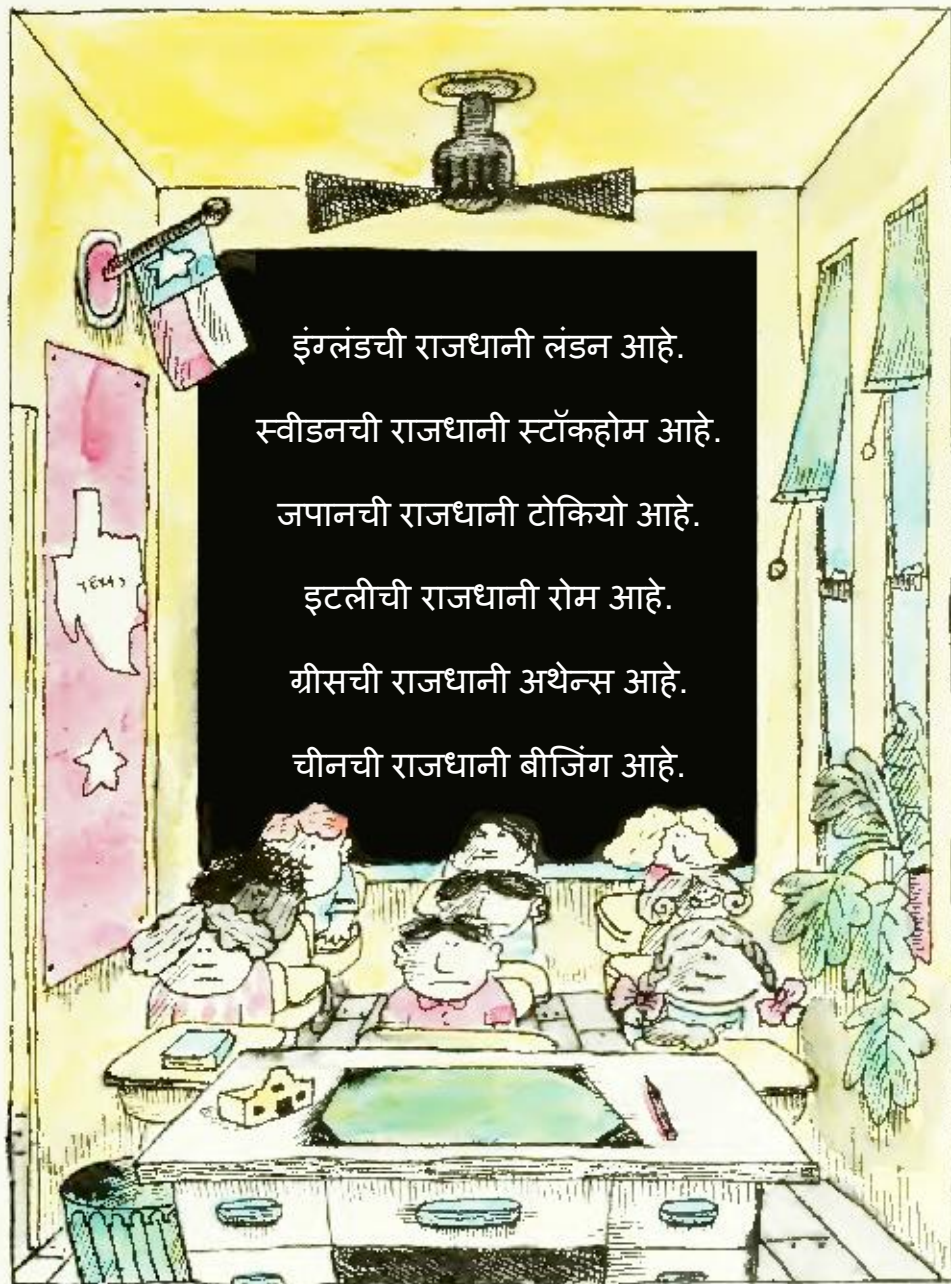 इंग्लंडची राजधानी लंडन आहे.
स्वीडनची राजधानी स्टॉकहोम आहे.
जपानची राजधानी टोकियो आहे.
इटलीची राजधानी रोम आहे.
ग्रीसची राजधानी अथेन्स आहे.
चीनची राजधानी बीजिंग आहे.
TEXAS